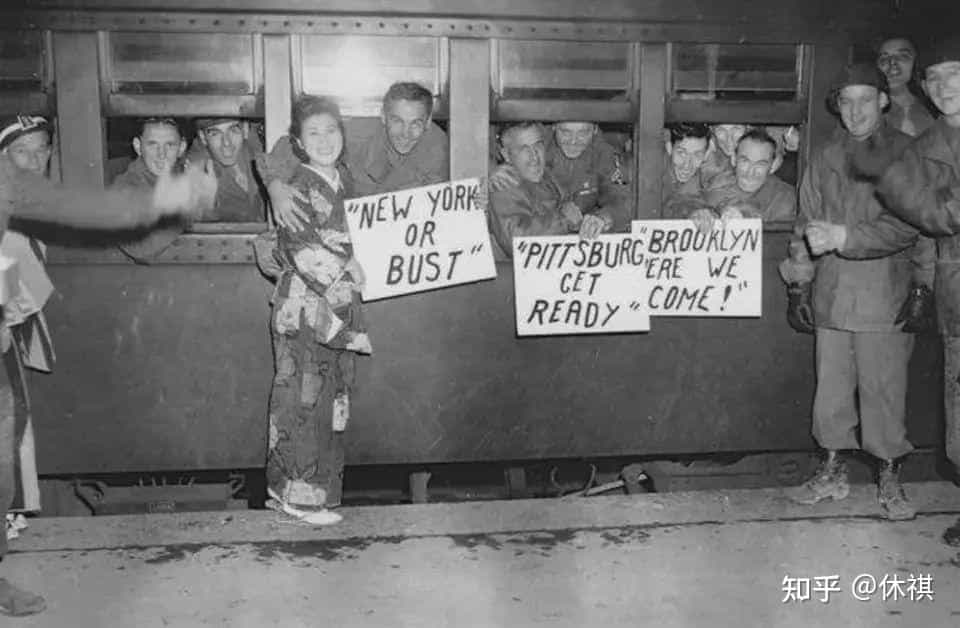 "NEW YORK
OR
BUST"
"PITTSBURG,
GET
READY"
"BROOKLYN
'ERE WE
COME!"
知乎 @休祺